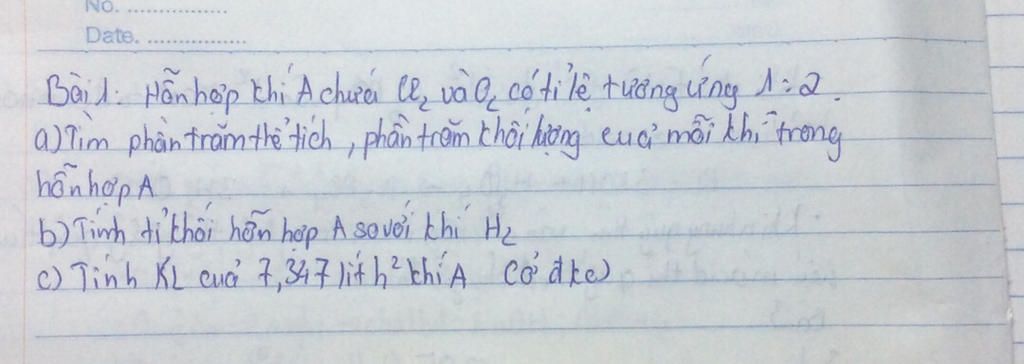 No. ..................
Date. .................
Bài 1: Hỗn hợp khí A chứa Cl₂ và O₂ có tỉ lệ tương ứng 1:2.
a) Tìm phần trăm thể tích, phần trăm khối lượng của mỗi khí trong
hỗn hợp A
b) Tính tỉ khối hỗn hợp A so với khí H₂
c) Tính KL của 7,347 lít h² khí A (ở đkc)